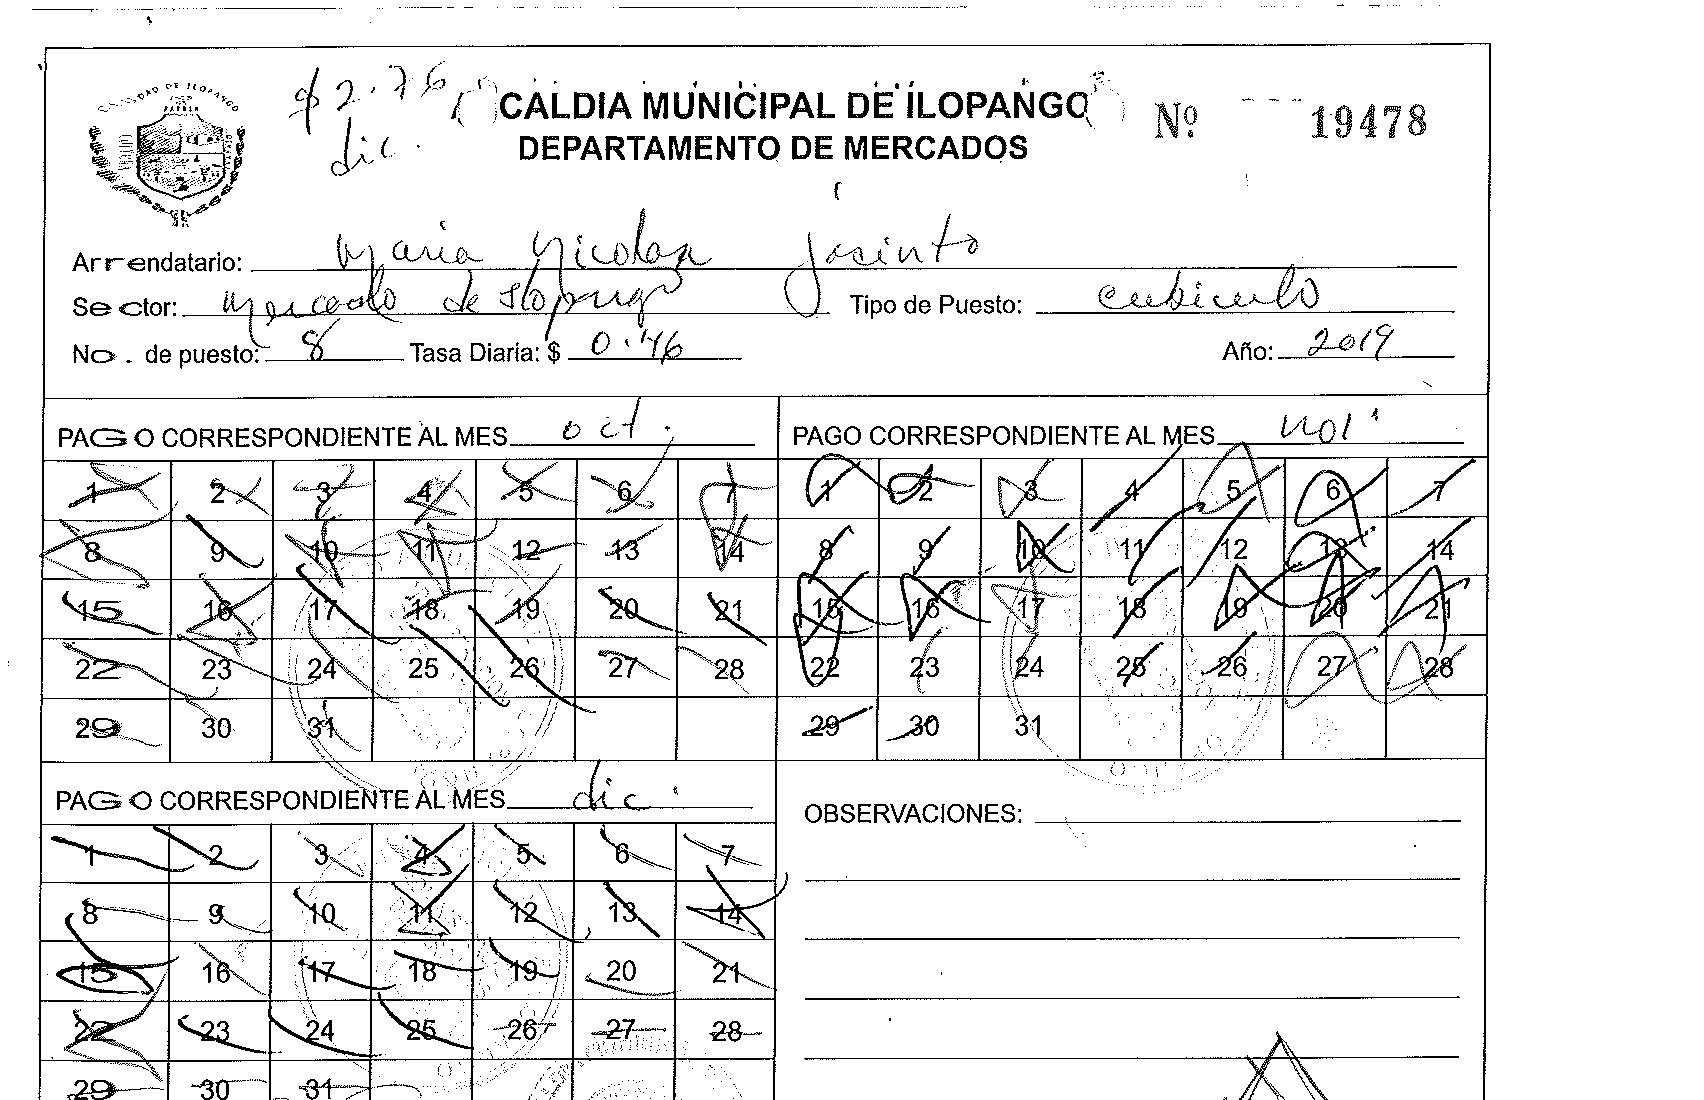 $2.76
dic.
CALDIA MUNICIPAL DE ILOPANGO
DEPARTAMENTO DE MERCADOS
Nº 19478
Arrendatario: Maria Nicolasa Jacinto
Sector: Mercado de Ilopango Tipo de Puesto: cubiculo
No. de puesto: 8 Tasa Diaria: $ 0.46 Año: 2019
PAGO CORRESPONDIENTE AL MES oct. PAGO CORRESPONDIENTE AL MES nov.
1 2 3 4 5 6 7 1 2 3 4 5 6 7
8 9 10 11 12 13 14 8 9 10 11 12 13 14
15 16 17 18 19 20 21 15 16 17 18 19 20 21
22 23 24 25 26 27 28 22 23 24 25 26 27 28
29 30 31 29 30 31
PAGO CORRESPONDIENTE AL MES dic. OBSERVACIONES:
1 2 3 4 5 6 7
8 9 10 11 12 13 14
15 16 17 18 19 20 21
22 23 24 25 26 27 28
29 30 31